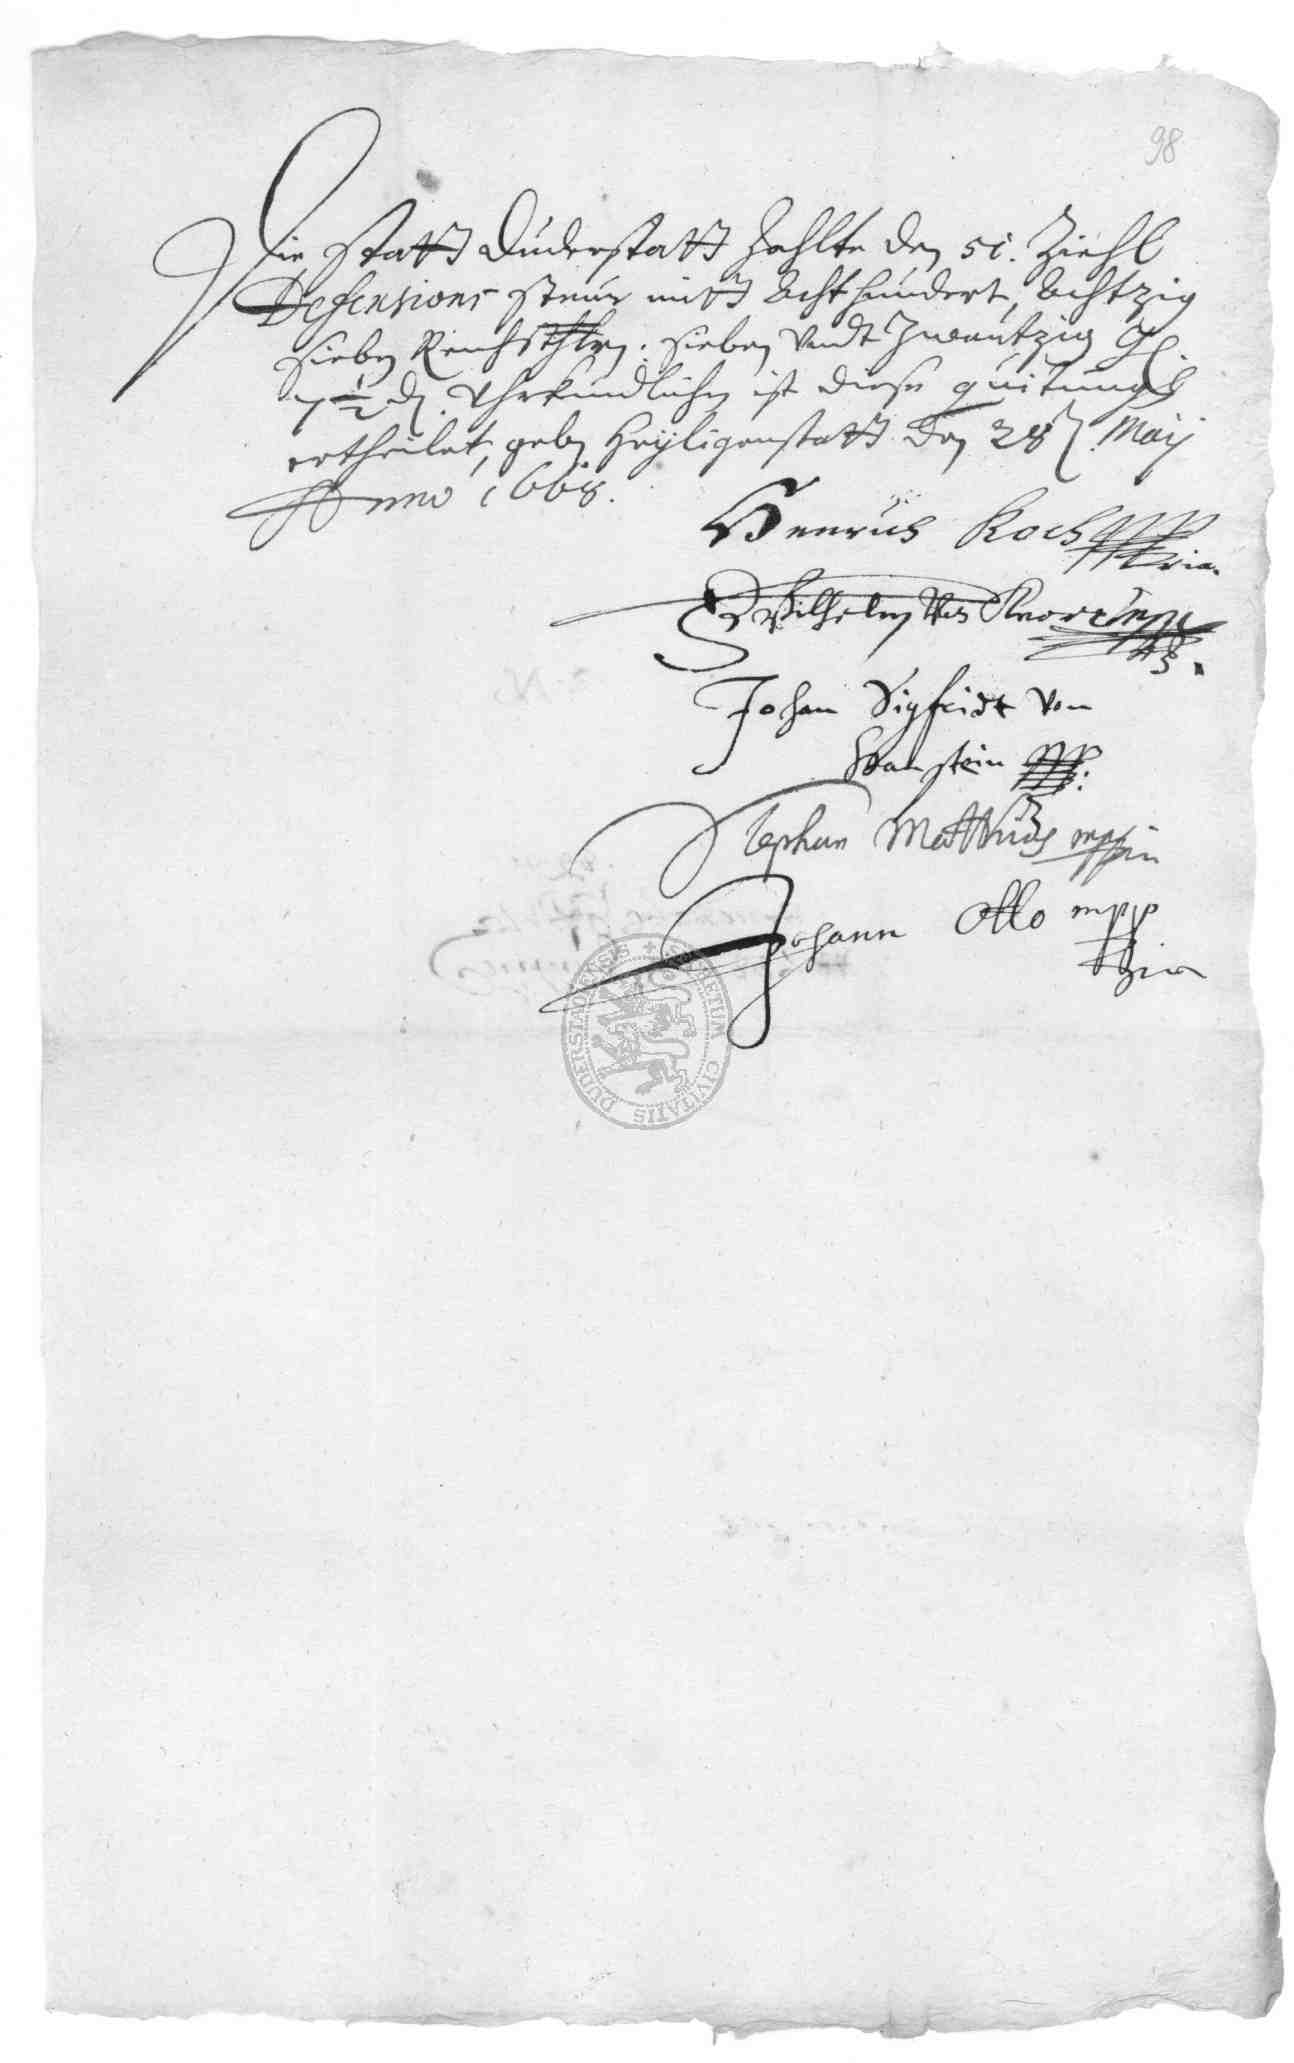 98
Die Statt Duderstatt Zahlte den 51. Ziehl
Defensions steur mitt Achthundert, Achtzig
sieben Reichsthlrn. sieben undt Zwantzig gl.
7 1/2 d. Uhrkundlichen ist diese quitungh
ertheilet, geben Heyligenstatt den 28ten Maij
Anno 1668.
Henricus Koch mpp
ria.
Wilhelm Knorr mp
Johan Sigfridt von
Hanstein mpp:
Stephan Matthias mppria
Johann Otto mpp
ria
SECRETUM CIVITATIS DUDERSTADENSIS